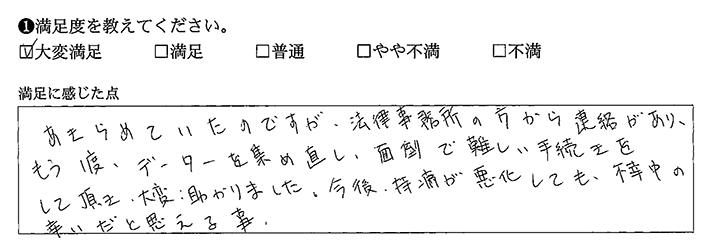 ❶満足度を教えてください。
☑大変満足 □満足 □普通 □やや不満 □不満
満足に感じた点
あきらめていたのですが、法律事務所の方から連絡があり、
もう1度、データーを集め直し、面倒で難しい手続きを
して頂き、大変、助かりました。今後、持病が悪化しても、不幸中の
幸いだと思える事。